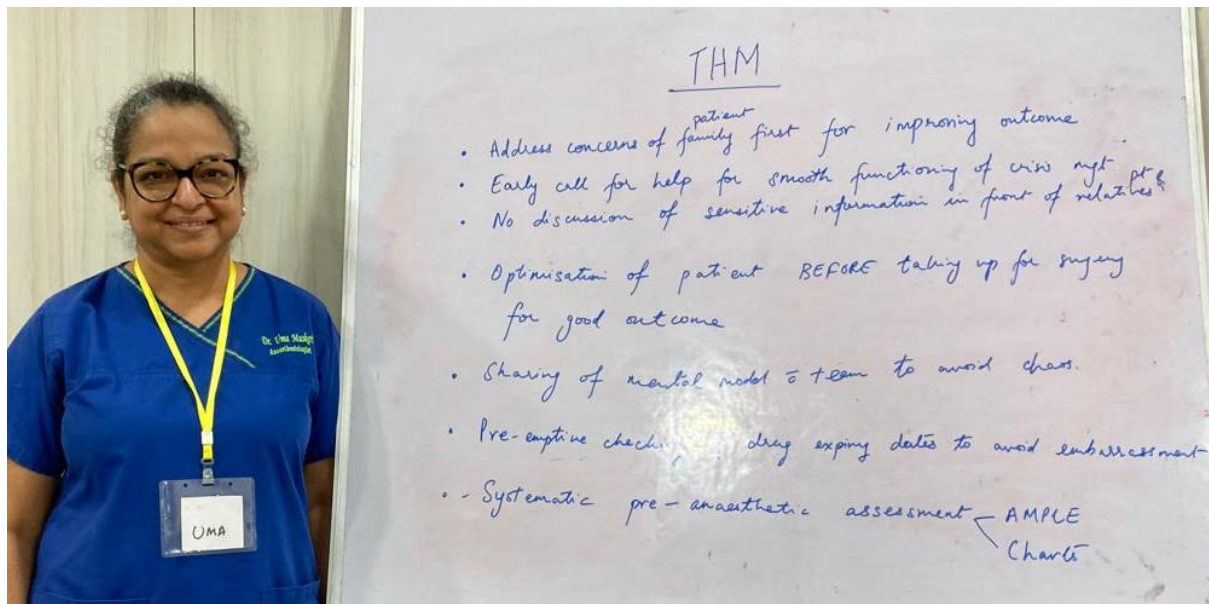 Dr. Uma
Anaesthesiologist
UMA
THM
patient
• Address concerns of family first for improving outcome
• Early call for help for smooth functioning of crisis mgt
• No discussion of sensitive information in front of relatives pt &
• Optimisation of patient BEFORE taking up for surgery
for good outcome
• Sharing of mental model c̄ team to avoid chaos.
• Pre-emptive checking drug expiry dates to avoid embarrassment
• - Systematic pre-anaesthetic assessment - AMPLE
Charts